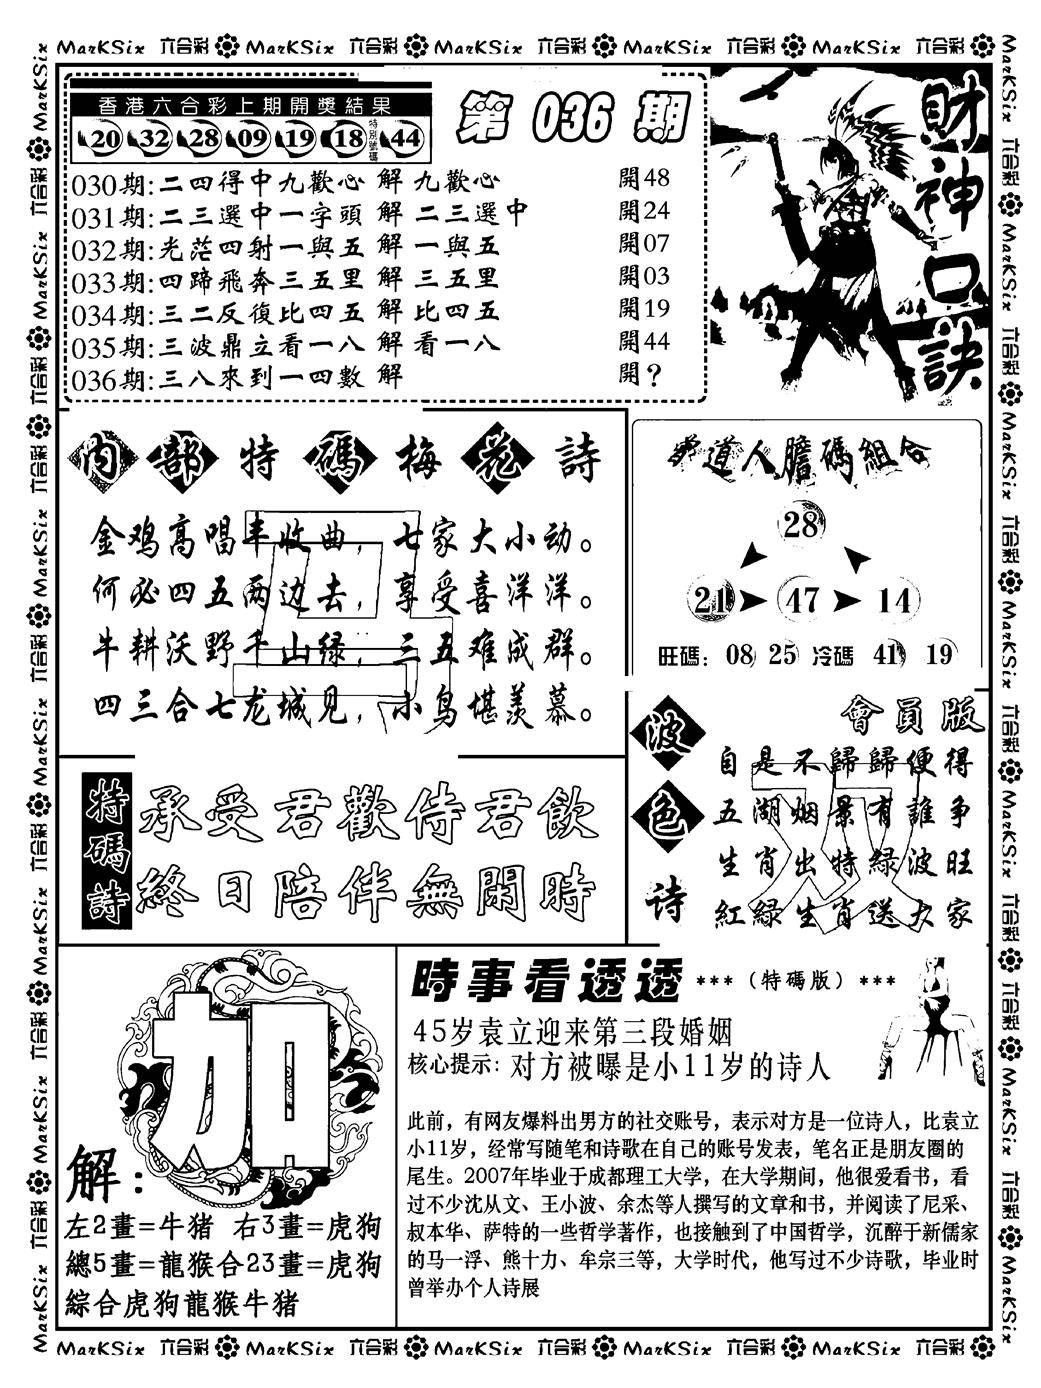 MarKSix 六合彩 MarKSix 六合彩 MarKSix 六合彩 MarKSix 六合彩 MarKSix 六合彩
香港六合彩上期開獎結果
20 32 28 09 19 18 特別號碼 44
第 036 期
030期:二四得中九歡心 解 九歡心 開48
031期:二三選中一字頭 解 二三選中 開24
032期:光茫四射一與五 解 一與五 開07
033期:四蹄飛奔三五里 解 三五里 開03
034期:三二反復比四五 解 比四五 開19
035期:三波鼎立看一八 解 看一八 開44
036期:三八來到一四數 解 開?
財神口訣
内部特碼梅花詩
金鸡高唱丰收曲，七家大小动。
何必四五两边去，享受喜洋洋。
牛耕沃野千山绿，三五难成群。
四三合七龙城见，小鸟堪羡慕。
道人膽碼組合
28
21 47 14
旺碼：08 25 冷碼 41 19
波色诗
會員版
自是不歸歸便得
五湖烟景有誰争
生肖出特緑波旺
紅緑生肖送大家
特碼詩
承受君歡侍君飲
終日陪伴無閑時
加
解：
左2畫=牛猪 右3畫=虎狗
總5畫=龍猴合23畫=虎狗
綜合虎狗龍猴牛猪
時事看透透 ***（特碼版）***
45岁袁立迎来第三段婚姻
核心提示: 对方被曝是小11岁的诗人
此前，有网友爆料出男方的社交账号，表示对方是一位诗人，比袁立
小11岁，经常写随笔和诗歌在自己的账号发表，笔名正是朋友圈的
尾生。2007年毕业于成都理工大学，在大学期间，他很爱看书，看
过不少沈从文、王小波、余杰等人撰写的文章和书，并阅读了尼采、
叔本华、萨特的一些哲学著作，也接触到了中国哲学，沉醉于新儒家
的马一浮、熊十力、牟宗三等，大学时代，他写过不少诗歌，毕业时
曾举办个人诗展
MarKSix 六合彩 MarKSix 六合彩 MarKSix 六合彩 MarKSix 六合彩 MarKSix 六合彩